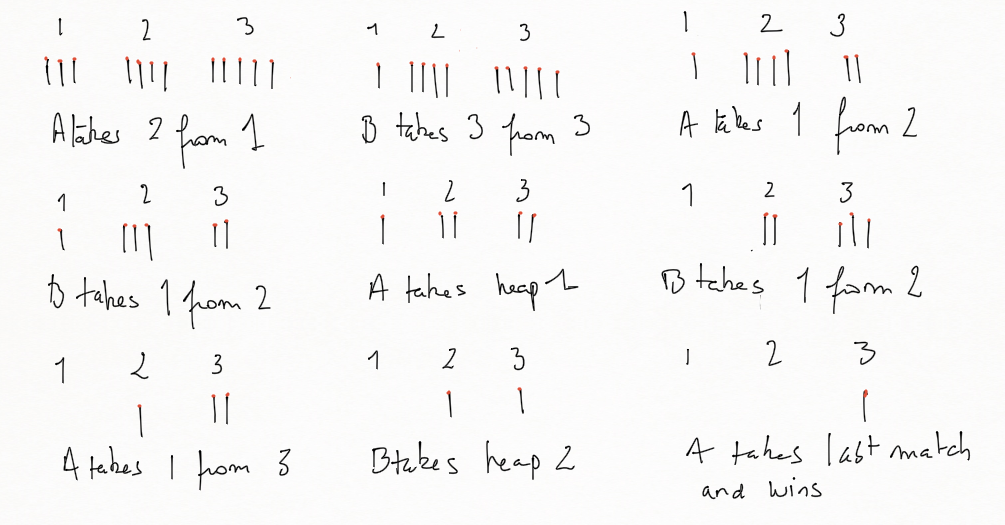 1 2 3
A takes 2 from 1
1 2 3
B takes 3 from 3
1 2 3
A takes 1 from 2
1 2 3
B takes 1 from 2
1 2 3
A takes heap 1
1 2 3
B takes 1 from 2
1 2 3
A takes 1 from 3
1 2 3
B takes heap 2
1 2 3
A takes last match
and wins